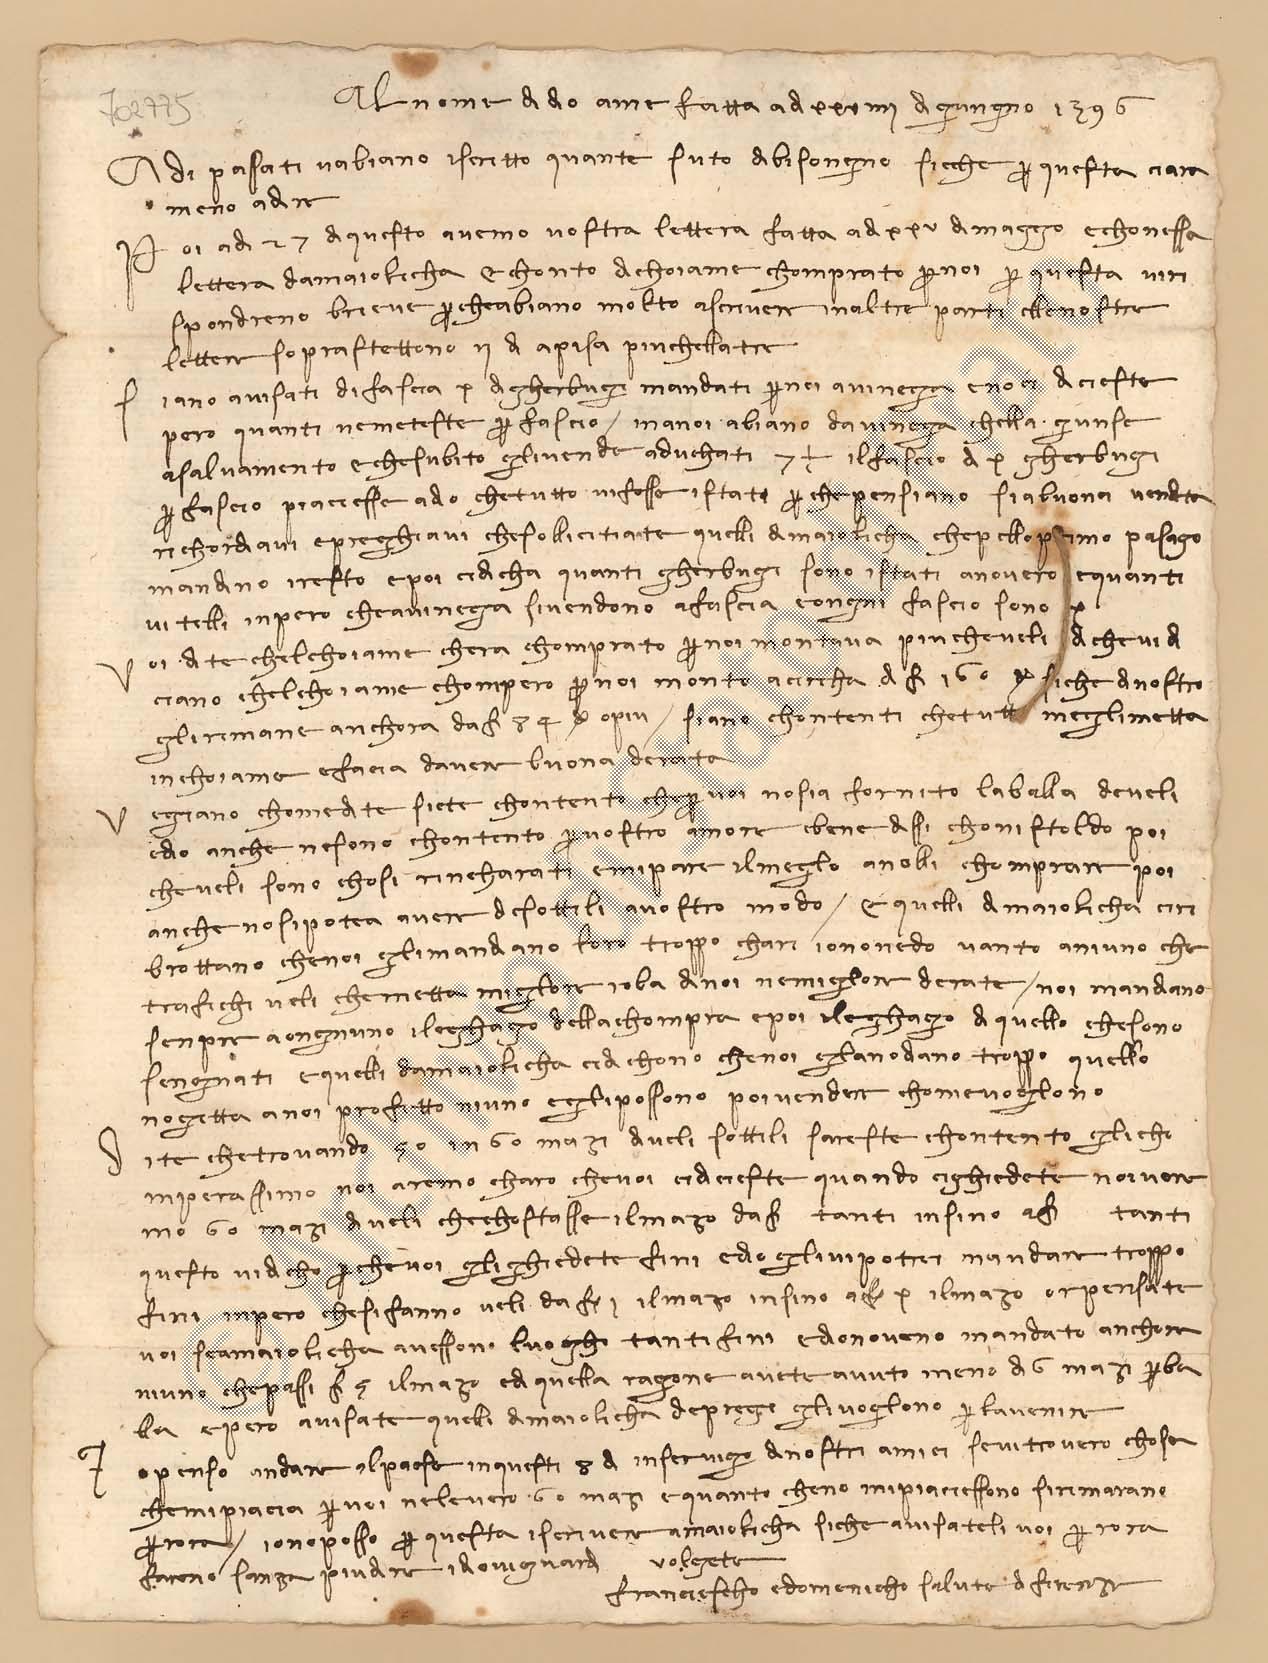 702775
Al nome di dio ame fatta a dì xxviiii di gungno 1396
A dì pasati v'abiano iscritto quante suto di bisongno sicche p questa ciara
meno a dire
Poi a dì 27 di questo avemo vostra lettera fatta a dì xxv di maggo e chon essa
lettera da maiolicha e chonto di choiame chomprato p noi p questa vi ri
spondreno brieve p che abiano molto a scriver in altre parti e lle nostre
letter soprastettono ii dì a pisa pinchellatre
Siano avisati di fascia x di gherbugi mandati p noi a vinega e no ci diceste
pero quanti ne meteste p fascio / ma noi abiano da vinega ch'ella gunse
a salvamento e che subito gli vende a duchati 7½ il fascio di x gherbugi
p fascio piacesse a dio che tutto vi fosse istati p che pensiano sia buona vendita
richordiavi e preghiavi che sollicitiate quelli di maiolicha che pello primo pasago
mandino iresto e poi ci dicha quanti gherbugi sono istati a novero e quanti
vitelli inpero che a vinega si vendono a fascia e ongni fascio sono x
Voi dite ch'el choiame ch'era chomprato p noi montava piu ch'e veli di che vi di
ciano ch'el choiame chompero p noi monto a circha di f 160 siche di nostro
gli rimane anchora da f 84 o piu / siano chontenti che tutto megli metta
in choiame e facia d'aver buona derata
Vegiano chome dite siete chontento che p voi no sia fornito la balla de veli
ed io anche ne sono chontento p vostro amore e bene dissi chon istoldo poi
che veli sono chosi rincharati e mi pare il meglo a nolli chomprare poi
anche no si potea aver di sottili a vostro modo / e quelli di maiolicha ci ri
brottano che noi gli mandiano loro troppo chari io no ne do vanto a niuno che
trafichi veli che metta miglior roba di noi ne miglor derate / noi mandiano
senpre a ongnuno ileghago della chompra e poi ileghago di quello che sono
sengnati e quelli da maiolicha ci dichono che noi gl'anodano troppo quello
no getta a noi profitto niuno e gli possono poi vender chome voglono
Dite che trovando 50 in 60 mazi di veli sottili sareste chontento gli cho
mperassimo noi aremo charo che voi ci diceste quando ci ghiedete noi vore
mo 60 mazi di veli che chostasse il mazo da f tanti insino a f tanti
questo vi dicho p che voi gli ghiedete fini ed io gli vi potrei mandar troppo
fini inpero che si fanno veli da f i il mazo insino a f x il mazo or pensate
voi se a maiolicha avessono luogho tanti fini ed io no v'eno mandato anchora
niuno che passi f 5 il mazo ed quella ragone avete avuto meno di 6 mazi p ba
lla e pero avisate quelli di maiolicha de pregi gli voglono p l'avenire
Io penso andar al paese in questi 8 dì in servigo di nostri amici se vi trovero chosa
che mi piacia p voi ne levero 60 mazi e quanto che no mi piacessono si rimarano
p rora / io no posso p questa iscriver a maiolicha siche avisateli voi p rora
fareno sanza piu dire idio vi ghuardi volgete
francescho e domenicho salute di firenze